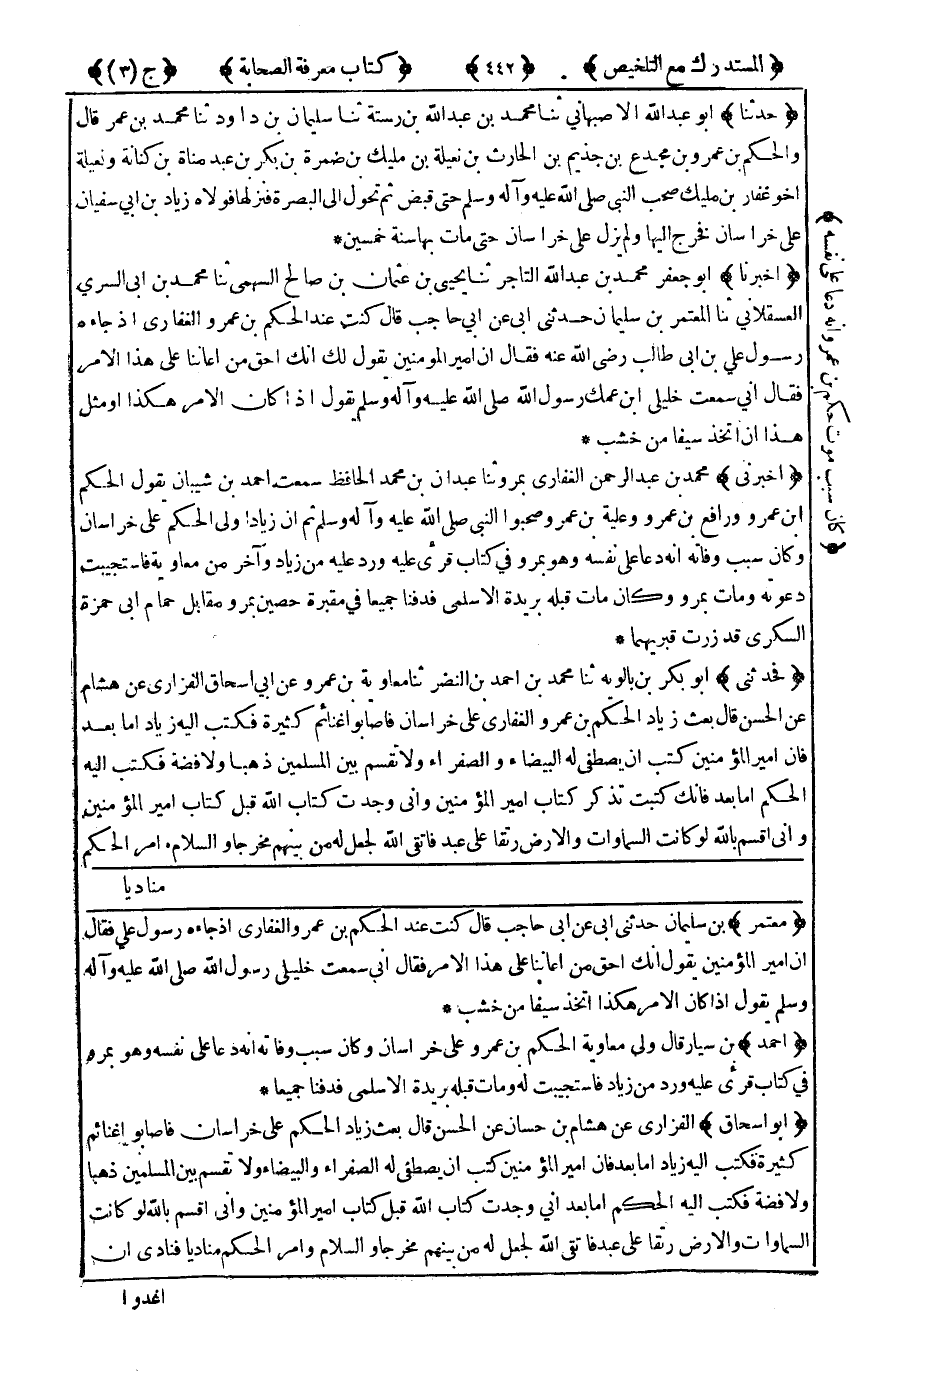 ﴿ المستدرك مع التلخيص ﴾ . ﴿ ٤٤٢ ﴾ ﴿ كتاب معرفة الصحابة ﴾ ﴿ ج (٣) ﴾
﴿ حدثنا ﴾ ابو عبدالله الاصبهاني ثنا محمد بن عبدالله بن رستة ثنا سليمان بن داود ثنا محمد بن عمر قال
والحكم بن عمرو بن مجدع بن جذيم بن الحارث بن نعيلة بن مليك بن ضمرة بن بكر بن عبد مناة بن كنانة ونعيلة
اخو غفار بن مليك صحب النبي صلى الله عليه وآله وسلم حتى قبض ثم تحول الى البصرة فنزلها فولاه زياد بن ابي سفيان
على خراسان فخرج اليها ولم يزل على خراسان حتى مات بها سنة خمسين *
﴿ اخبرنا ﴾ ابو جعفر محمد بن عبدالله التاجر ثنا يحيى بن عثمان بن صالح السهمى ثنا محمد بن ابى السري
العسقلاني ثنا المعتمر بن سليمان حدثنى ابى عن ابي حاجب قال كنت عند الحكم بن عمرو الغفارى اذ جاءه
رسول علي بن ابى طالب رضى الله عنه فقال ان امير المومنين يقول لك انك احق من اعاننا على هذا الامر
فقال اني سمعت خليلى ابن عمك رسول الله صلى الله عليه وآله وسلم يقول اذا كان الامر هكذا او مثل
هذا ان اتخذ سيفا من خشب *
﴿ اخبرنى ﴾ محمد بن عبدالرحمن الغفارى بمرو ثنا عبدان بن محمد الحافظ سمعت احمد بن شيبان يقول الحكم
ابن عمرو ورافع بن عمرو وعلية بن عمرو صحبوا النبي صلى الله عليه وآله وسلم ثم ان زيادا ولى الحكم على خراسان
وكان سبب وفاته انه دعا على نفسه وهو بمرو في كتاب قرئ عليه ورد عليه من زياد وآخر من معاوية فاستجيبت
دعوته ومات بمرو وكان مات قبله بريدة الاسلمى فدفنا جميعا في مقبرة حصين بمرو مقابل حمام ابى حمزة
السكرى قد زرت قبريهما *
﴿ فحدثنى ﴾ ابو بكر بن بالويه ثنا محمد بن احمد بن النضر ثنا معاوية بن عمرو عن ابي اسحاق الفزارى عن هشام
عن الحسن قال بعث زياد الحكم بن عمرو الغفارى على خراسان فاصابوا غنائم كثيرة فكتب اليه زياد اما بعد
فان امير المؤمنين كتب ان يصطفى له البيضاء والصفراء ولا تقسم بين المسلمين ذهبا ولا فضة فكتب اليه
الحكم اما بعد فانك كتبت تذكر كتاب امير المؤمنين وانى وجدت كتاب الله قبل كتاب امير المؤمنين
وانى اقسم بالله لو كانت السماوات والارض رتقا على عبد فاتقى الله لجعل له من بينهم مخرجا والسلام، امر الحكم
مناديا
﴿ معتمر ﴾ بن سليمان حدثنى ابى عن ابى حاجب قال كنت عند الحكم بن عمرو الغفارى اذ جاءه رسول علي فقال
ان امير المؤمنين يقول انك احق من اعاننا على هذا الامر فقال انى سمعت خليلى رسول الله صلى الله عليه وآله
وسلم يقول اذا كان الامر هكذا اتخذ سيفا من خشب *
﴿ احمد ﴾ بن سيار قال ولى معاوية الحكم بن عمرو على خراسان وكان سبب وفاته انه دعا على نفسه وهو بمرو
في كتاب قرئ عليه ورد من زياد فاستجيبت له ومات قبله بريدة الاسلمى فدفنا جميعا *
﴿ ابو اسحاق ﴾ الفزارى عن هشام بن حسان عن الحسن قال بعث زياد الحكم على خراسان فاصابوا غنائم
كثيرة فكتب اليه زياد اما بعد فان امير المؤمنين كتب ان يصطفى له الصفراء والبيضاء ولا تقسم بين المسلمين ذهبا
ولا فضة فكتب اليه الحكم اما بعد اني وجدت كتاب الله قبل كتاب امير المؤمنين وانى اقسم بالله لو كانت
السماوات والارض رتقا على عبد فاتقى الله لجعل له من بينهم مخرجا والسلام وامر الحكم مناديا فنادى ان
اغدوا
﴿ كان سبب موت حكم بن عمر وانه دعا على نفسه ﴾